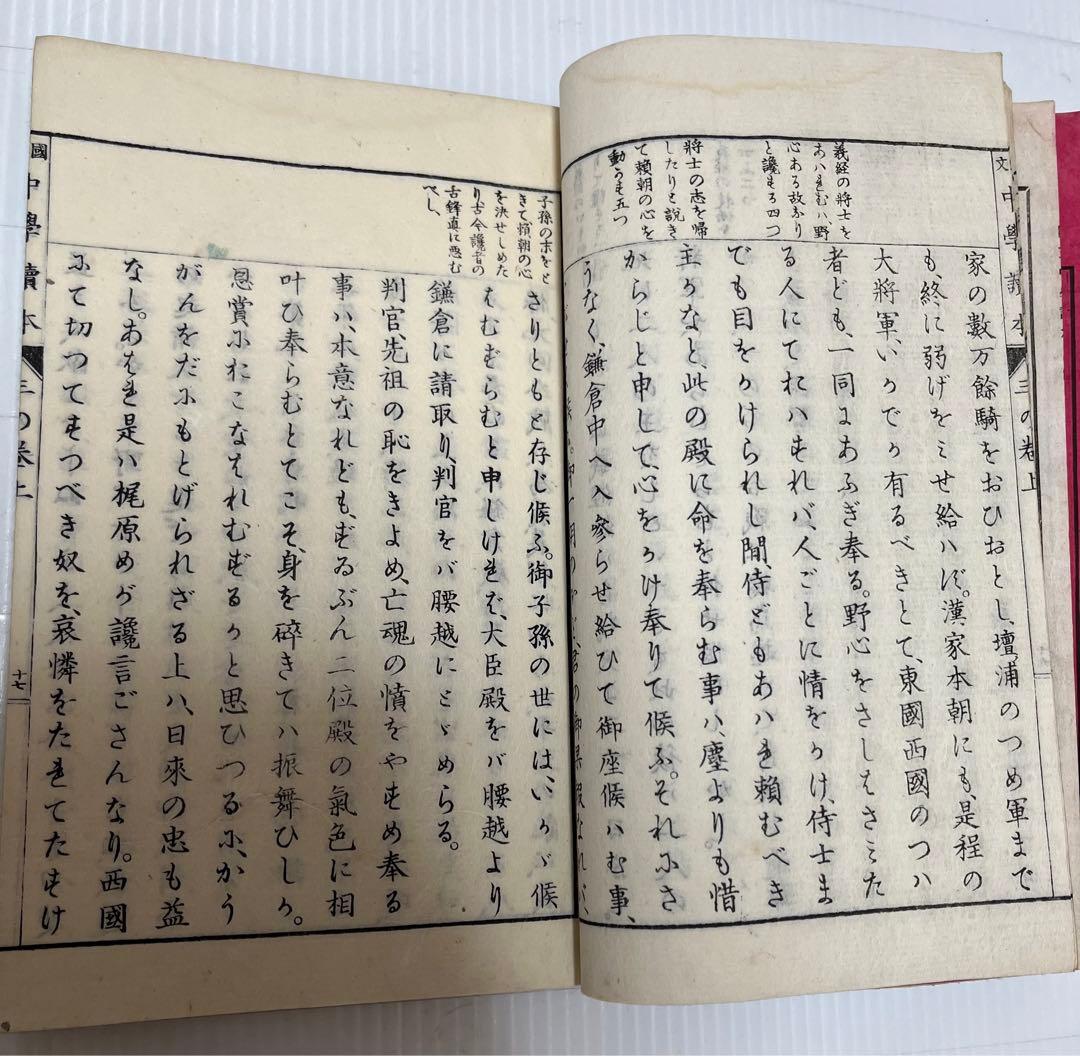 文 中學讀本 三の卷上
義經の將士を
あハれむハ、野
心ある故なり
と讒する四つ
將士の志を歸
したりと說き
て賴朝の心を
動かす五つ
家の數万餘騎をおひおとし、壇浦のつめ軍まで
も、終に弱げをミせ給ハず。漢家本朝にも、是程の
大將軍、いかでか有るべきとて、東國西國のつハ
者ども、一同にあふぎ奉る。野心をさしはさミた
る人にておハすれバ、人ごとに情をかけ、侍士ま
でも目をかけられし間、侍どもあハれ賴むべき
主かなと、此の殿に命を奉らむ事ハ、塵よりも惜
からじと申して、心をかけ奉りて候ふ。それにさ
うなく、鎌倉中へ入參らせ給ひて御座候ハむ事、
君の御果報なれバ、
子孫の末をと
きて頼朝の心
を決せしめた
り古今讒者の
舌鋒眞に惡む
べし、
さりともと存じ候ふ。御子孫の世には、いかゞ候
はむずらむと申しければ、大臣殿をバ腰越より
鎌倉に請取り、判官をバ腰越にとゞめらる。
判官、先祖の恥をきよめ、亡魂の憤をやすめ奉る
事ハ、本意なれども、ずゐぶん二位殿の氣色に相
叶ひ奉らむとてこそ、身を碎きてハ振舞ひしか。
恩賞におこなはれむずるかと思ひつるに、かう
がんをだにもとげられざる上ハ、日來の忠も益
なし。あはれ是ハ梶原めが讒言ごさんなり。西國
にて切つてすつべき奴を、哀憐をたれてたすけ
國 中學讀本 三の卷上 十七